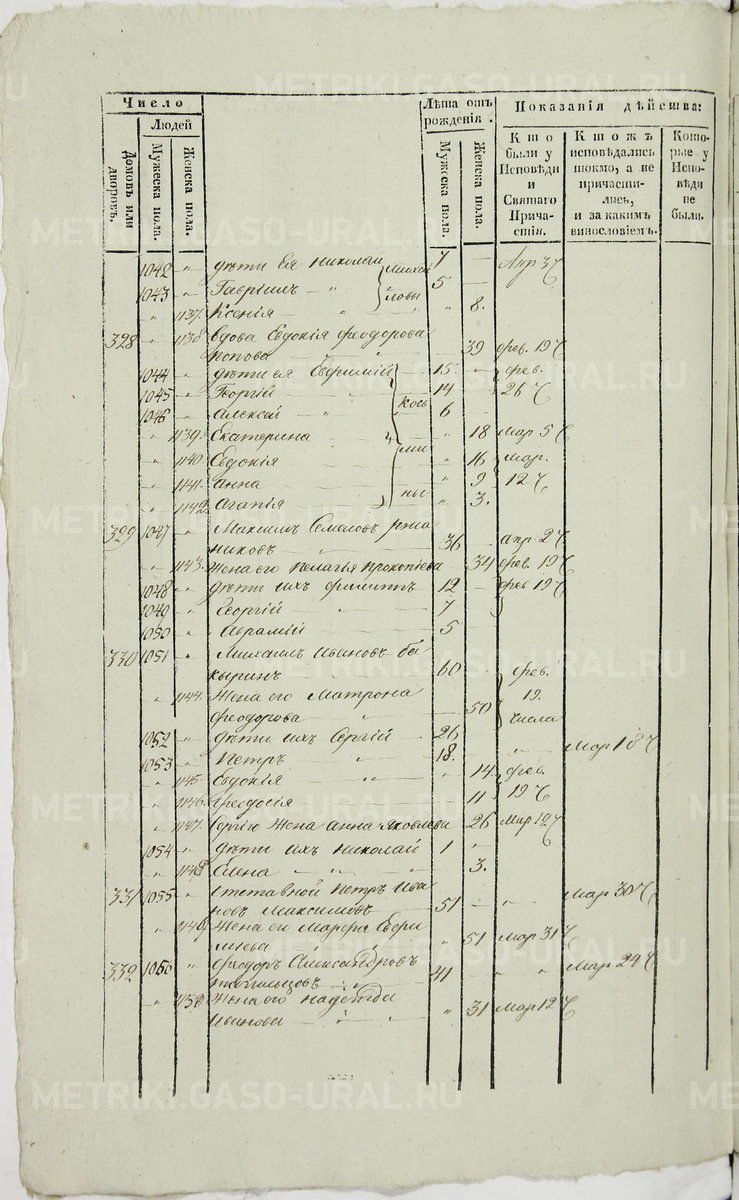 Число
Людей
Домовъ или дворовъ.
Мужеска пола.
Женска пола.
Лѣта отъ рожденія.
Мужеска пола.
Женска пола.
Показанія дѣйства:
Кто были у Исповѣди и Святаго Причастія.
Ктожъ исповѣдались токмо, а не причастились, и за какимъ винословіемъ.
Которые у Исповѣди не были.
1042 " дѣти ея Николай 7 — Апр 3 ч
1043 " Гавріилъ — " Михайловы 5 —
" 1137. Ксенія — " " 8.
328 " 1138 вдова Евдокія Феодорова
попова — " 39 фев. 19 ч
1044 " дѣти ея Ефримій 15. " фев.
1045 " Георгій — " 14 26 ч
1046 " Алексей — " Косьмины 6
" 1139. Екатерина " 18 Мар 5 ч
" 1140 Евдокія " 16 мар.
" 1141. Анна — " 9 12 ч
" 1142 Агапія " 3.
329 1047 " Максимъ Семеновъ
никовъ " 36 — апр 2 ч
" 1143. Жена его Пелагія Прокопіева 34 фев. 19 ч
1048 " дѣти ихъ Филиппъ 12 — фев 19 ч
1049 " Георгій — " 7
1050 " Аврамій — 5
330 1051 " Михаилъ Ивановъ ба
кыринъ " 60 фев.
" 1144. Жена его Матрона 19.
Феодорова " 50 числа
1052 " дѣти ихъ Сергій 26 — Мар 18 ч
1053 " Петръ " 18. "
" 1145. Евдокія " " 14 фев.
" 1146. Феодосія " 11 19 ч
" 1147. Сергію Жена Анна Яковлева 26 Мар 19 ч
1054 " дѣти ихъ Николай 1 "
" 1148 Елена " " 3.
331 1055 " Отставной Петръ Ива
новъ Максимовъ 51 — " Мар 30 ч
" 1149. Жена его Марфа Ефри
міева " 51 Мар 31 ч
332 1056 " Феодоръ Александровъ
41 — " " Мар 24 ч
" 1150 Жена его Надежда
Иванова — " " 31 Мар 12 ч
METRIKI.GASO-URAL.RU